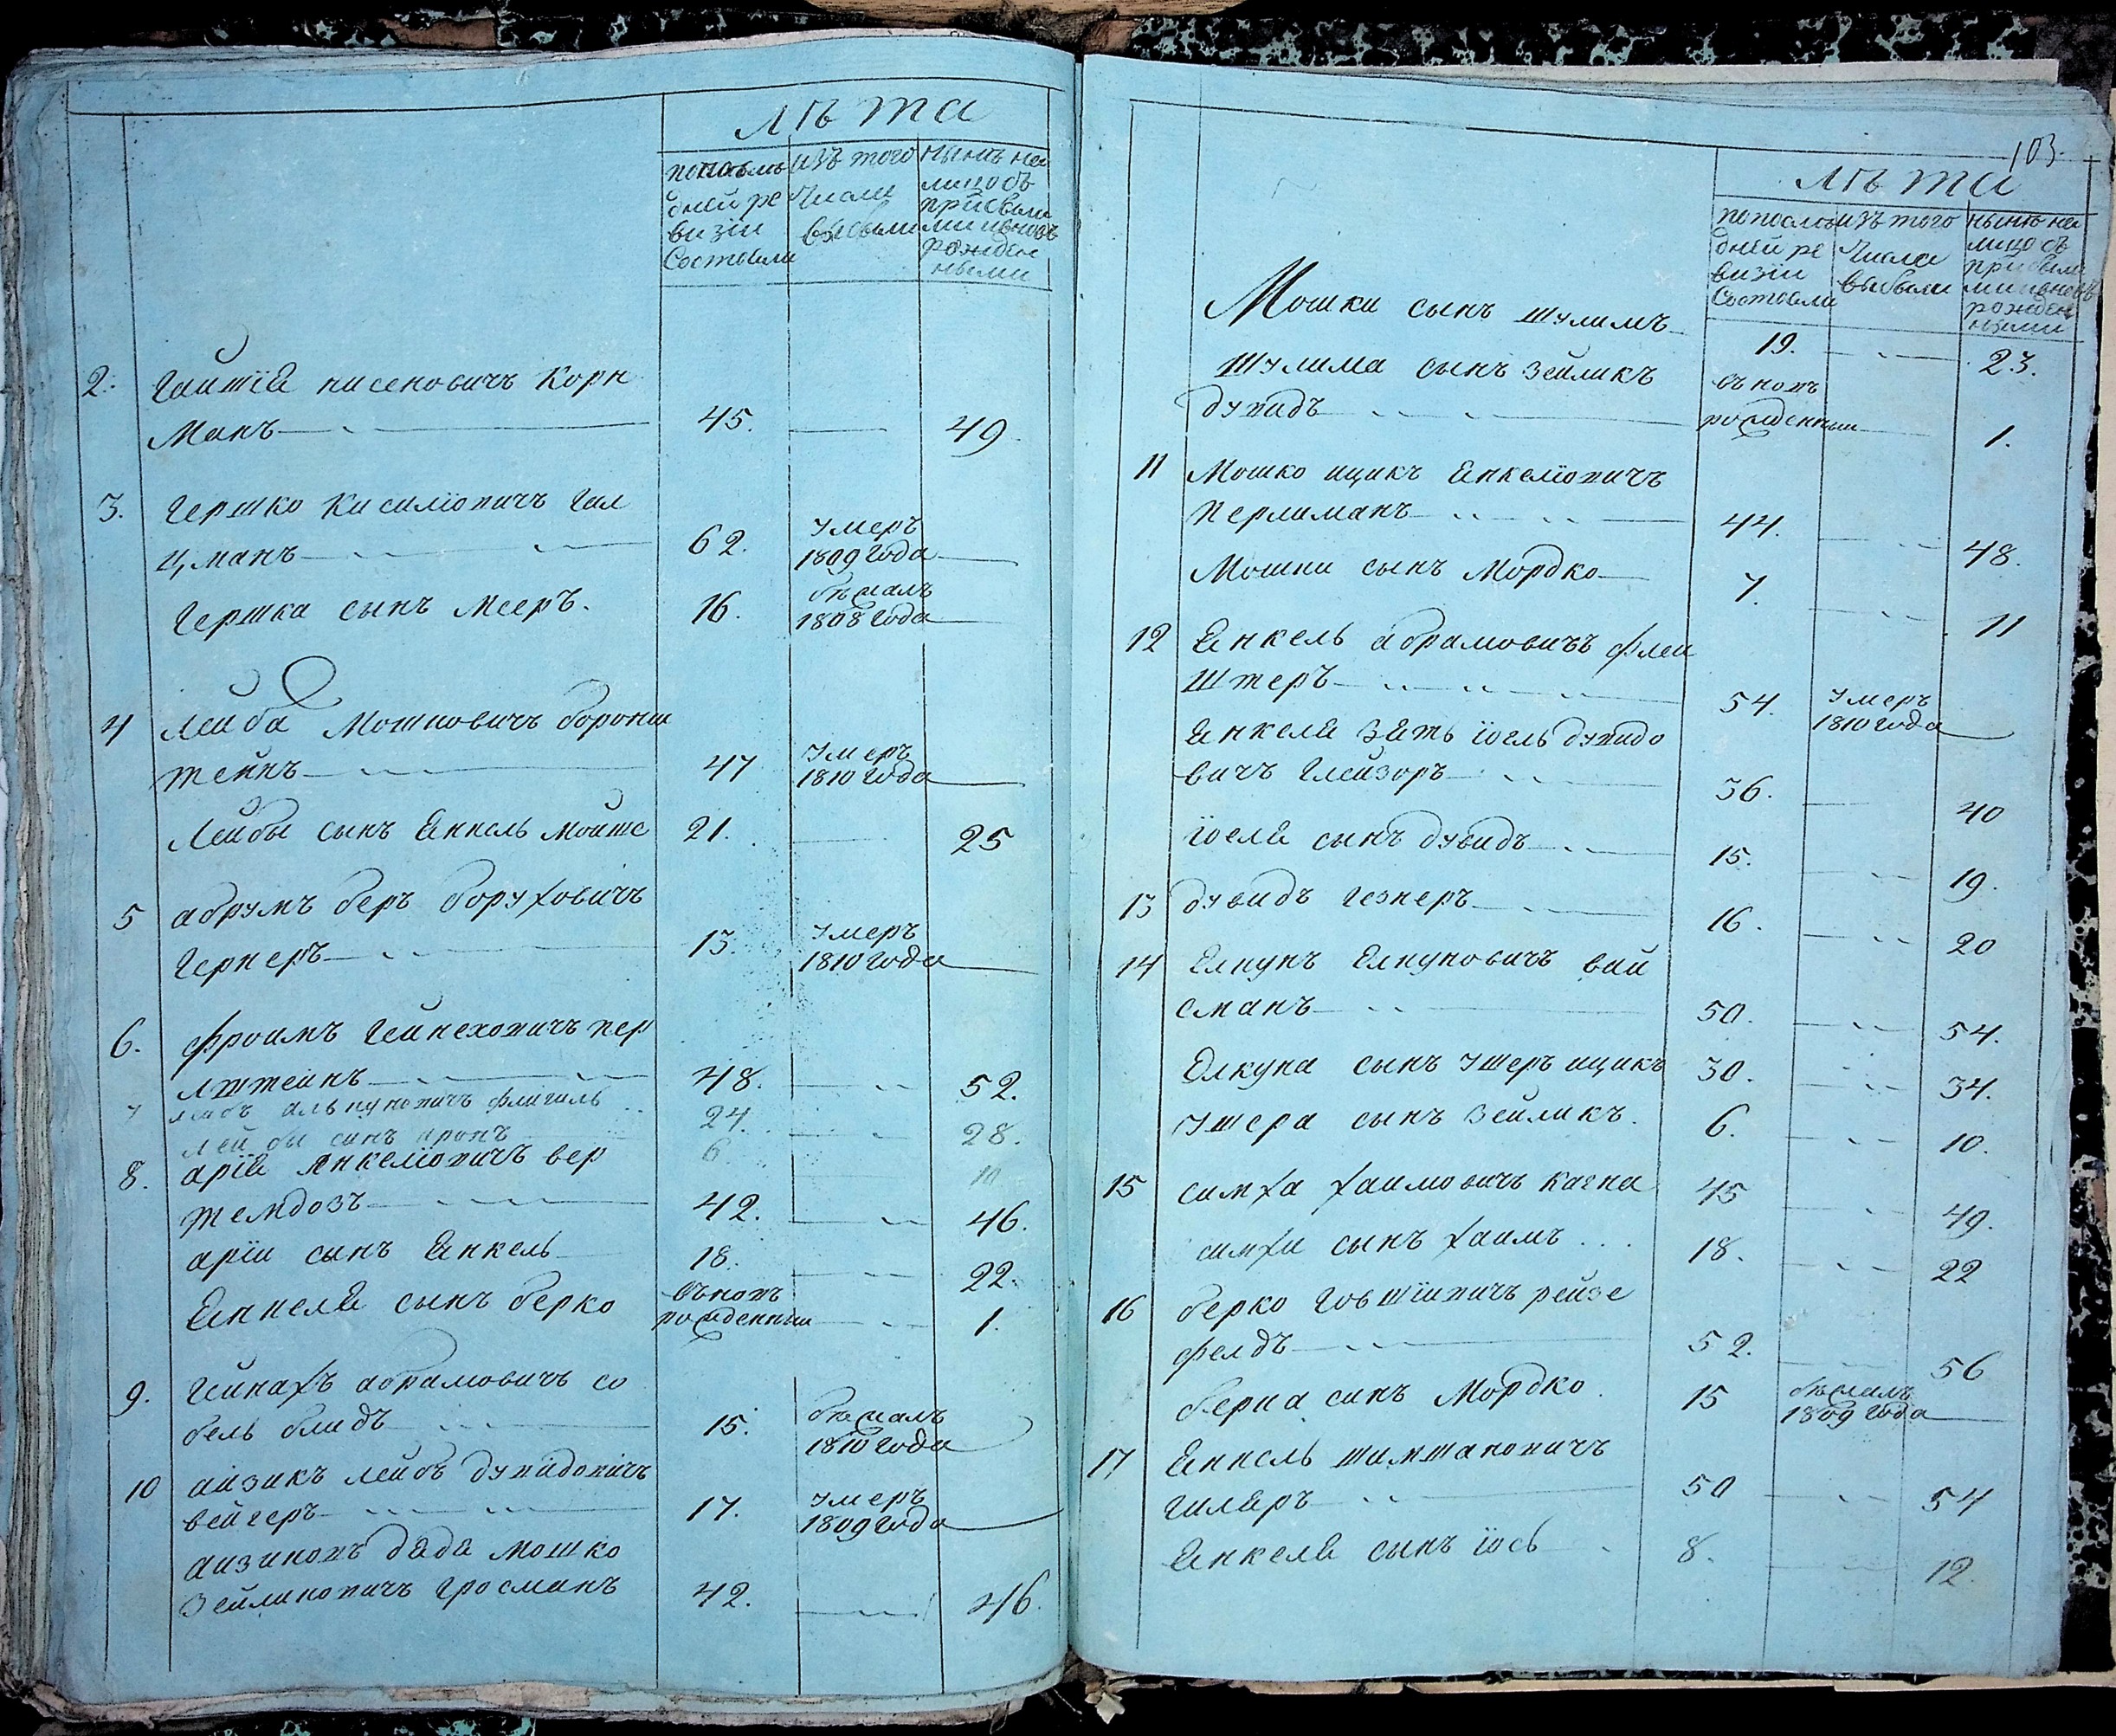 Лѣта
попослѣ изъ того нынѣ на
дней ре числа лицо съ
визіи выбыли прибылы
состояли ми ивновь
рожден
ными
2. Гаишія нисеновичъ Корн
манъ 45. 49.
3. Гершко Кисилiовичъ Гал
цманъ 62. умеръ
1809 года
Гершка сынъ Мееръ. 16. бѣжалъ
1808 года
4 Лейба Мошковичъ боронш
тейнъ 47 умеръ
1810 года
Лейбы сынъ Янкель Мойше 21. 25
5 абрумъ беръ боруховичъ
Гернеръ 13. умеръ
1810 года
6. Фроимъ Гейнеховичъ пер
лштейнъ 48. 52.
7 лейбъ алькуновичъ флигиль 24. 28.
лейбы синъ аронъ 6 10
8. арія Янкелiовичъ вер
темдозъ 42. 46.
аріи сынъ Янкель 18. 22.
Янкеля сынъ берко въновъ
рожденный 1.
9. Гейнахъ абрамовичъ со
бель блидъ 15. бѣжалъ
1810 года
10 айзикъ лейбъ дувидовичъ
вейгеръ 17. умеръ
1809 года
айзиковъ дядя мошко
Зейликовичъ гросманъ 42. 46.
103.
Лѣта
попослѣ изъ того нынѣ на
дней ре числа лицо съ
визіи выбыли прибылы
состояли ми ивновь
рожден
ными
Мошки сынъ шулимъ 19. 23.
Шулима сынъ Зейликъ въновъ
дувидъ рожденный 1.
11 Мошко ицикъ Янкелiовичъ
Перлиманъ 44. 48.
Мошки сынъ Мордко 7. 11
12 Янкель абрамовичъ флеи
штеръ 54. умеръ
1810 года
Янкеля зять iосль дувидо
вичъ глейзоръ 36. 40
iоселя сынъ дувидъ 15. 19.
13 дувидъ гезнеръ 16. 20
14 Елкунъ Елкуновичъ вай
сманъ 50. 54.
Элкуна сынъ ушеръ ицикъ 30. 34.
Ушера сынъ Зейликъ. 6. 10.
15 симха хаимовичъ кагна 45 49.
симхи сынъ хаимъ 18. 22
16 берко говшіивичъ рейзе
фелдъ 52. 56
берка синъ Мордко 15 бѣжалъ
1809 года
17 Янкель шимшановичъ
гиляръ 50 54
Янкеля сынъ iось 8. 12.